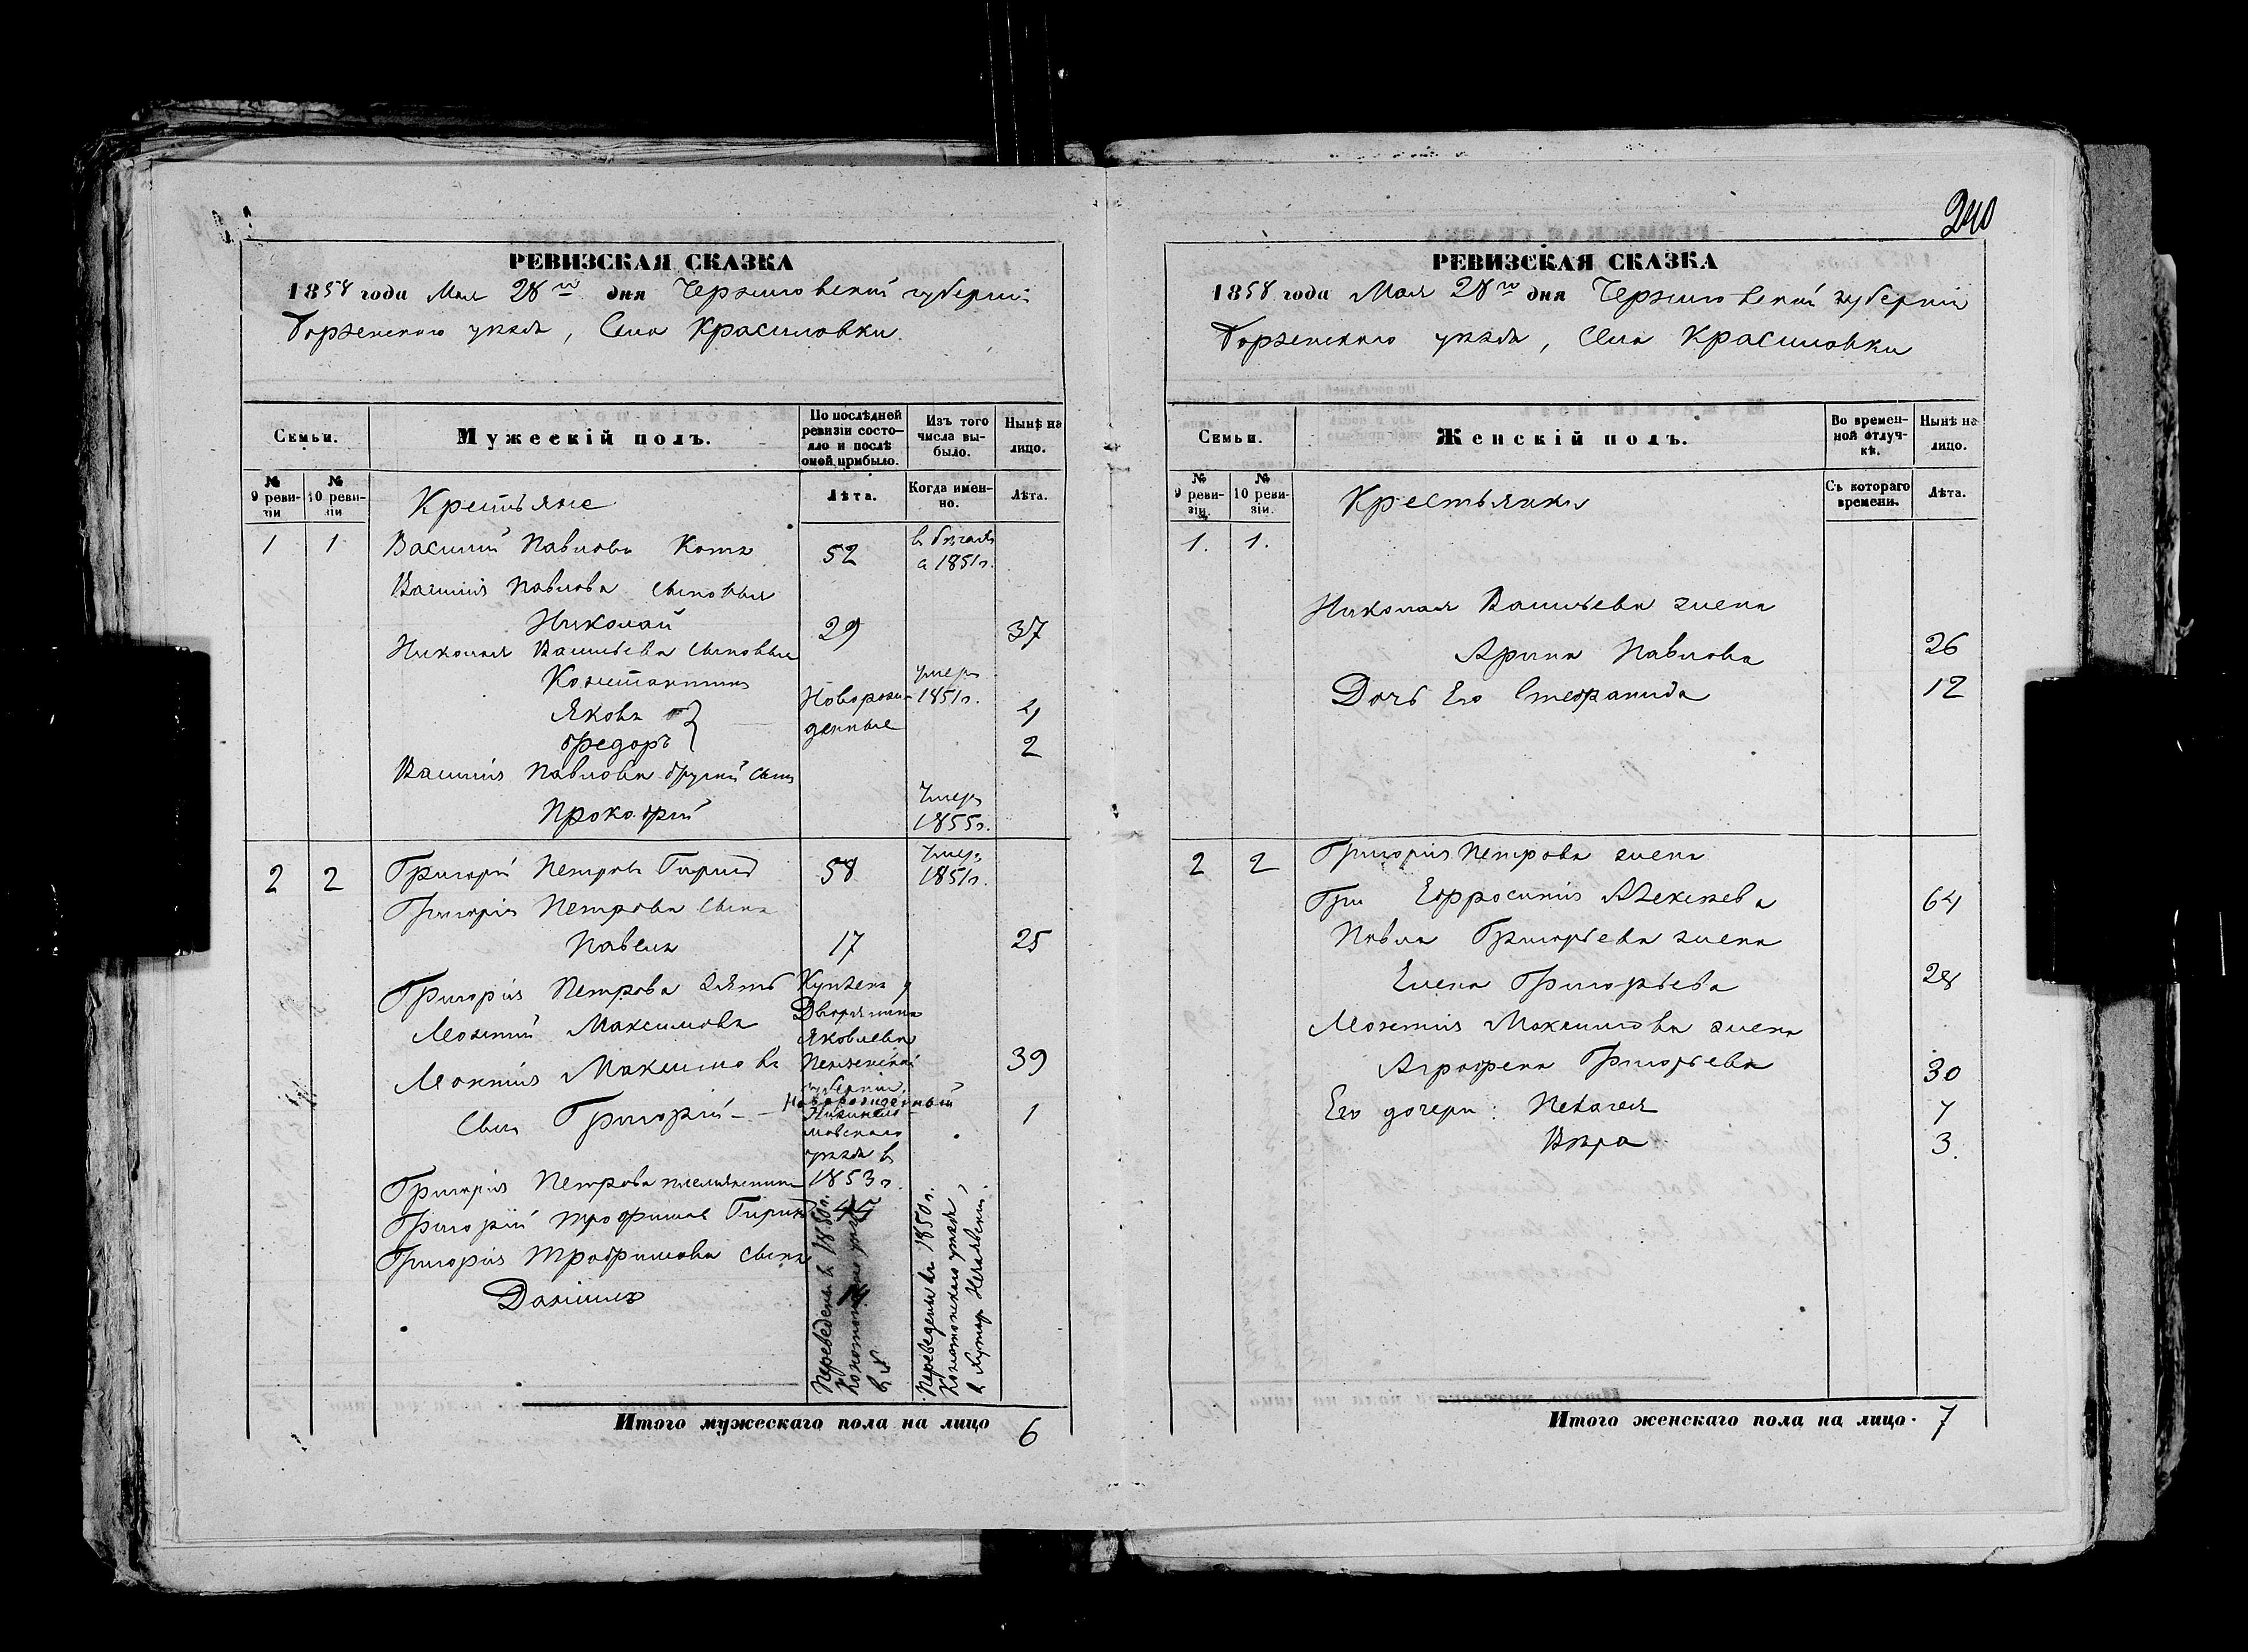 240
РЕВИЗСКАЯ СКАЗКА
1858 года Мая 28го дня Черниговской губернии
Борзенского уезда, Села Красиловки.
Семьи.
Мужескій полъ.
По послѣдней ревизіи состояло и послѣ оной прибыло.
Изъ того числа выбыло.
Нынѣ на лицо.
№ 9 ревизіи
№ 10 ревизіи
Крестьяне
Лѣта.
Когда именно.
Лѣта.
1 1 Василий Павловъ 52 в бегахъ с 1851г.
Василия Павлова сыновья
Николай 29 37
Николая Васильева сыновья
Константинъ умеръ 1851г.
Яковъ Новорожденные 4
Федоръ 2
Василия Павлова другий сынъ
Прокофий Умеръ 1855г.
2 2 Григорій Петровъ 58 Умеръ 1851г.
Григорія Петрова сынъ
Павелъ 17 25
Григорія Петрова зять
Моксий Максимовъ 39
Куплен у Дворянина Яковлева Пензенской губернии
уезда в 1853г.
Максимова
Сынъ Григорій - Новорожденный 1
Григорія Петрова племянникъ
Григорій Трофимов
Григорія Трофимова сынъ
Даніилъ
Переведены в 1850г.
Переведены въ 1850г. Конотопскаго уезда, в Хутор
Итого мужескаго пола на лицо 6
РЕВИЗСКАЯ СКАЗКА
1858 года Мая 28го дня Черниговской губерніи
Борзенского уезда, Села Красиловки
Семьи.
Женскій полъ.
Во временной отлучкѣ.
Нынѣ на лицо.
№ 9 ревизіи.
№ 10 ревизіи.
Крестьянки
Съ котораго времени.
Лѣта.
1. 1.
Николая Васильева жена
Арина Павлова 26
Дочь Его Стефанида 12
2 2 Григорія Петрова жена
Гри Ефросинія Алексеева 64
Павла Григорьева жена
Елена Григорьева 28
Максимова жена
Агрофена Григорьева 30
Его дочери: Пелагея 7
Вѣра 3.
Итого женскаго пола на лицо. 7